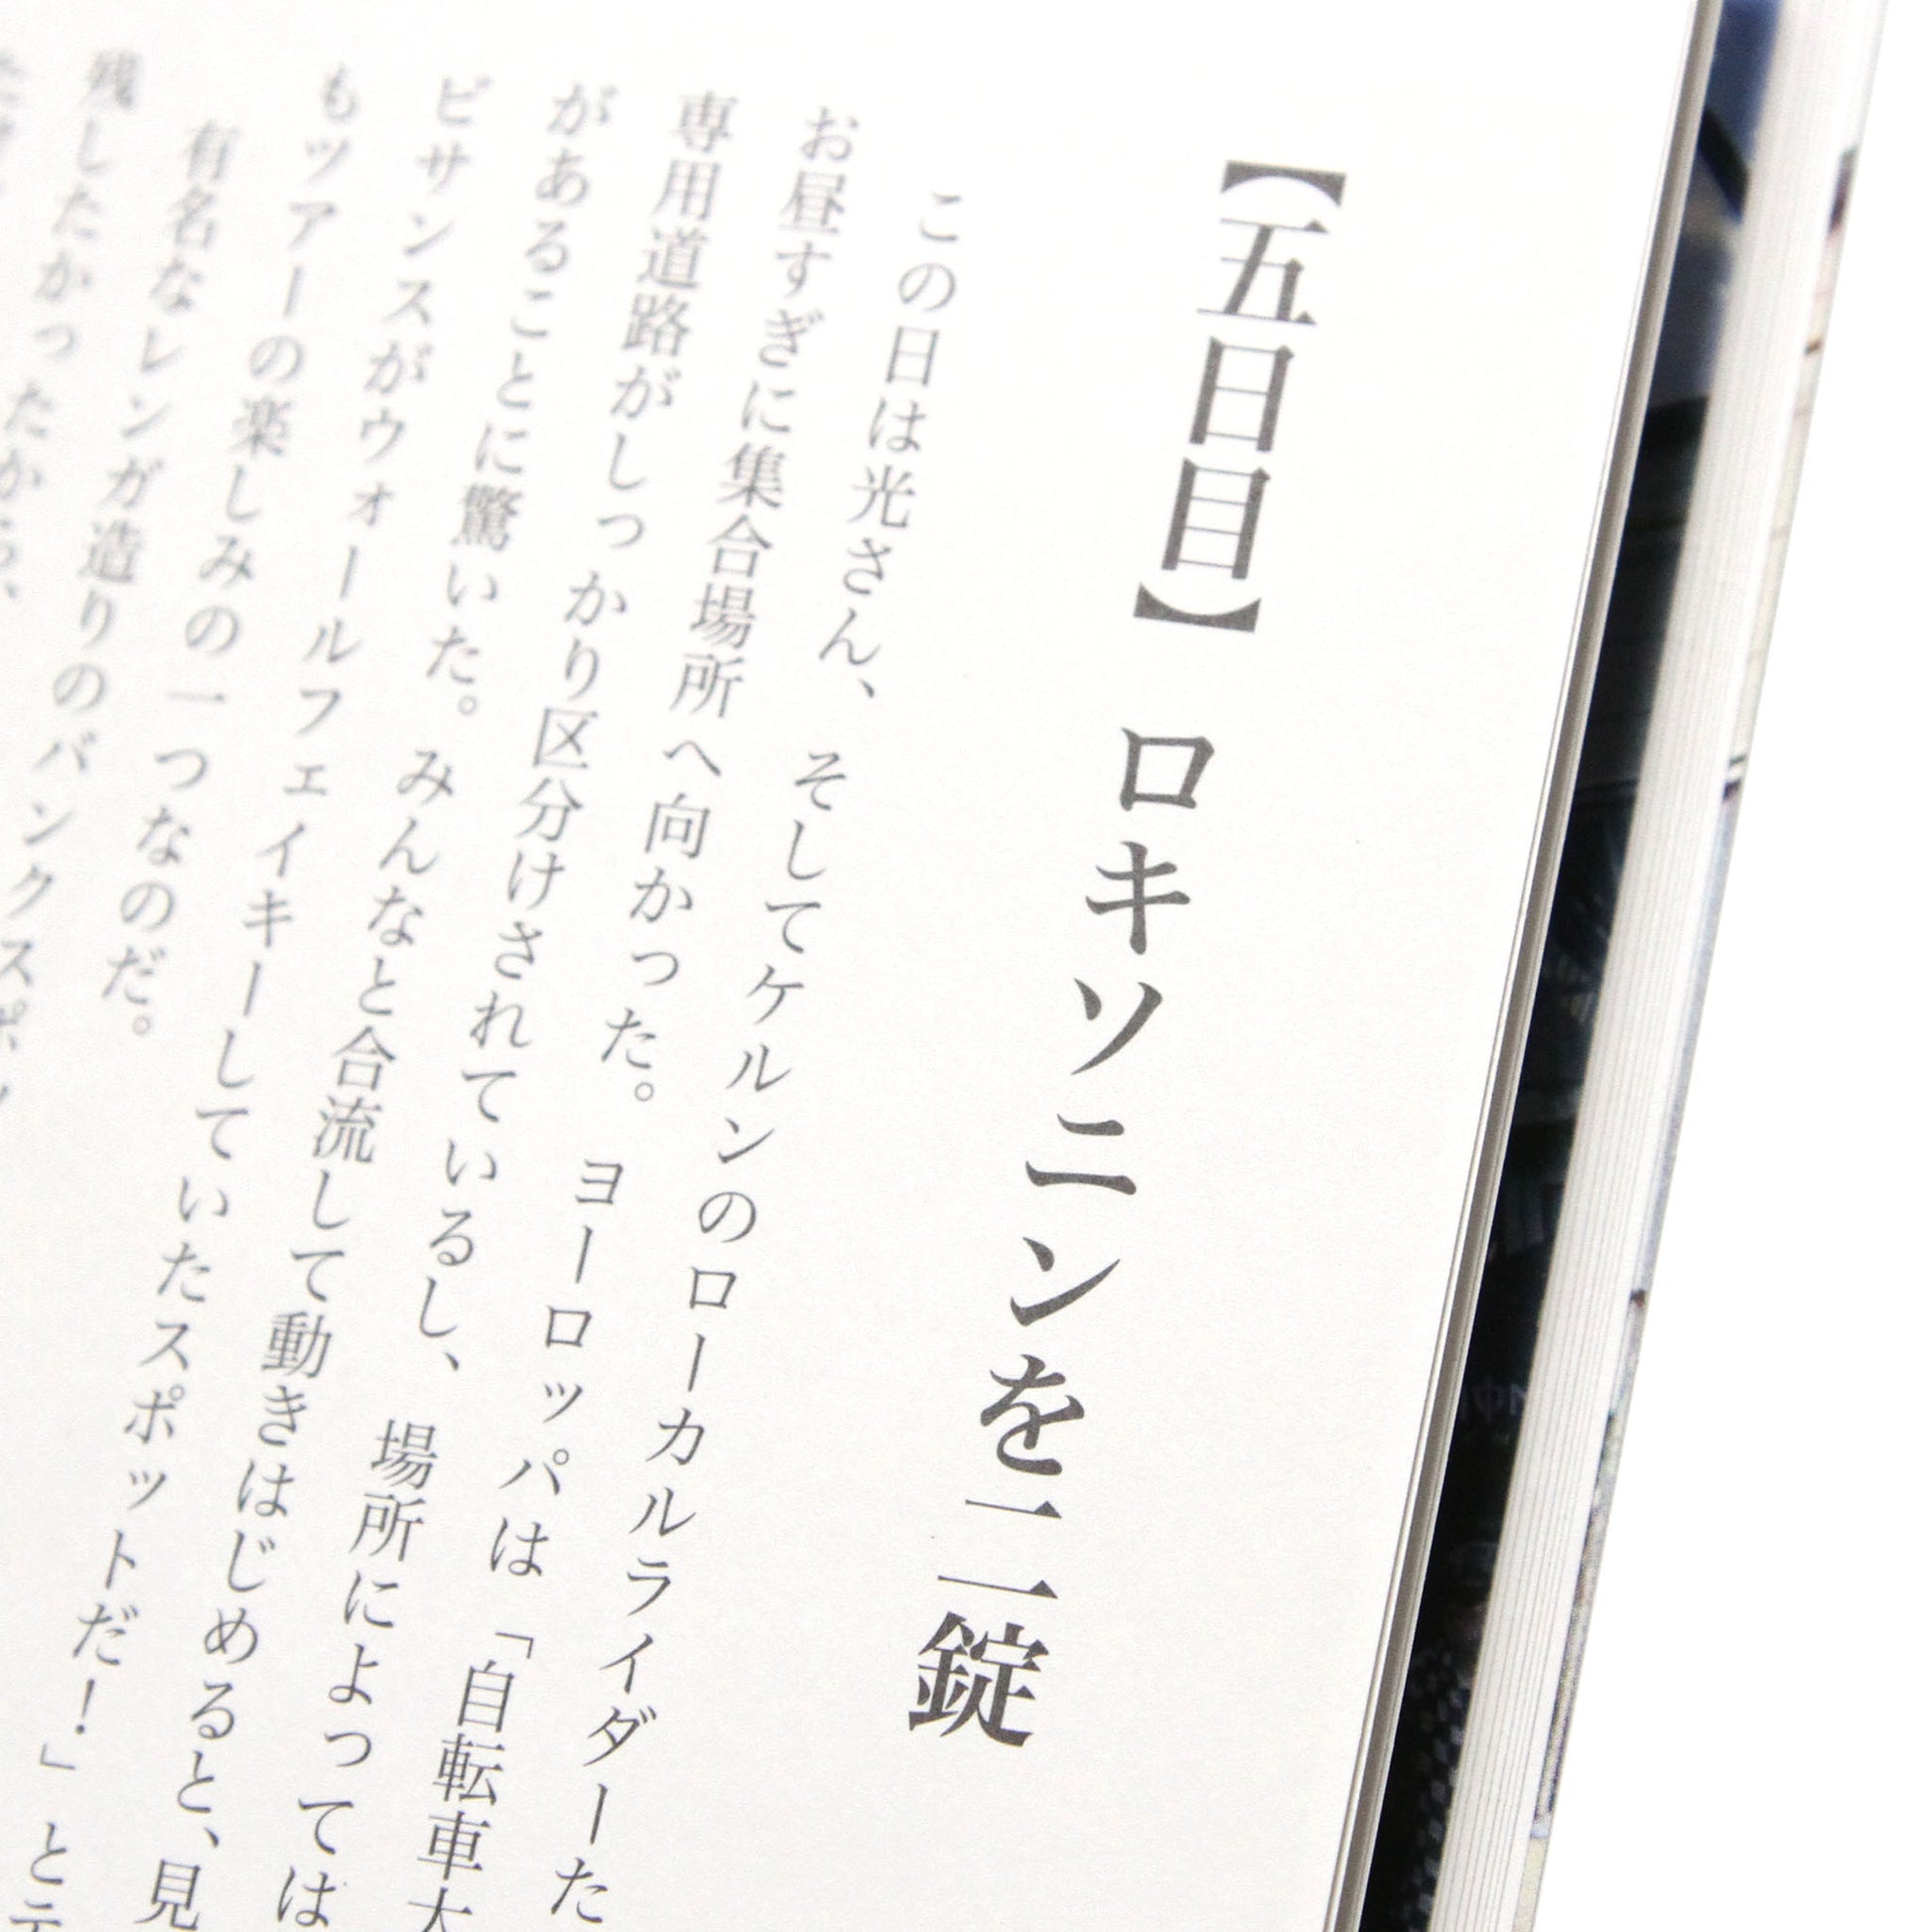 【五日目】 ロキソニンを二錠
この日は光さん、そしてケルンのローカルライダーた
お昼すぎに集合場所へ向かった。ヨーロッパは「自転車大
専用道路がしっかり区分けされているし、場所によっては
があることに驚いた。みんなと合流して動きはじめると、見
ビサンスがウォールフェイキーしていたスポットだ！」とテ
もツアーの楽しみの一つなのだ。
有名なレンガ造りのバンクスポ
残したかったから、